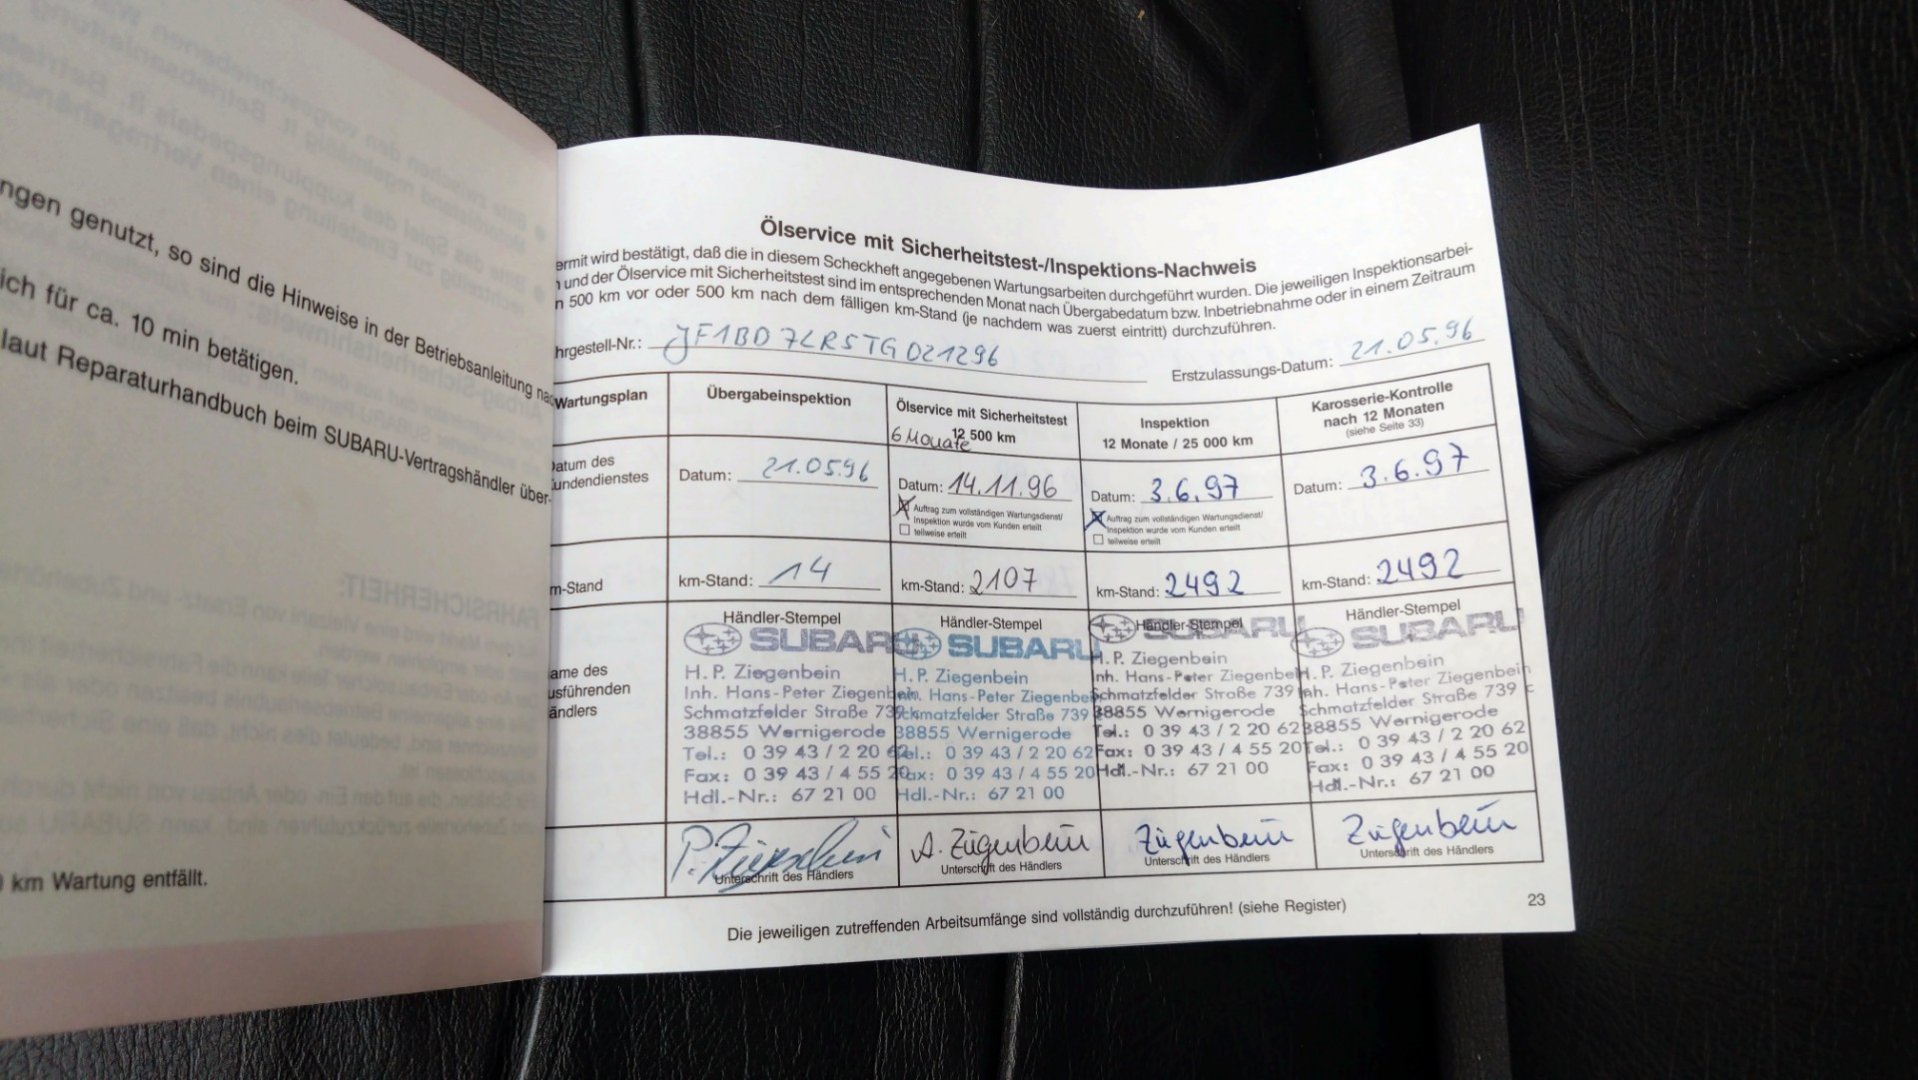 ngen genutzt, so sind die Hinweise in der Betriebsanleitung
ich für ca. 10 min betätigen.
laut Reparaturhandbuch beim SUBARU-Vertragshändler über-
km Wartung entfällt.
Ölservice mit Sicherheitstest-/Inspektions-Nachweis
ermit wird bestätigt, daß die in diesem Scheckheft angegebenen Wartungsarbeiten durchgeführt wurden. Die jeweiligen Inspektionsarbei-
und der Ölservice mit Sicherheitstest sind im entsprechenden Monat nach Übergabedatum bzw. Inbetriebnahme oder in einem Zeitraum
n 500 km vor oder 500 km nach dem fälligen km-Stand (je nachdem was zuerst eintritt) durchzuführen.
hrgestell-Nr.: JF1BD7LR5TG021296 Erstzulassungs-Datum: 21.05.96
Wartungsplan
Übergabeinspektion
Ölservice mit Sicherheitstest
12 500 km
6 Monate
Inspektion
12 Monate / 25 000 km
Karosserie-Kontrolle
nach 12 Monaten
(siehe Seite 33)
Datum des
Kundendienstes
Datum: 21.05.96
Datum: 14.11.96
Auftrag zum vollständigen Wartungsdienst/
Inspektion wurde vom Kunden erteilt
teilweise erteilt
Datum: 3.6.97
Auftrag zum vollständigen Wartungsdienst/
Inspektion wurde vom Kunden erteilt
teilweise erteilt
Datum: 3.6.97
m-Stand
km-Stand: 14
km-Stand: 2107
km-Stand: 2492
km-Stand: 2492
ame des
usführenden
ändlers
Händler-Stempel
SUBARU
H. P. Ziegenbein
Inh. Hans-Peter Ziegenbein
Schmatzfelder Straße 739
38855 Wernigerode
Tel.: 0 39 43 / 2 20 62
Fax: 0 39 43 / 4 55 20
Hdl.-Nr.: 67 21 00
Händler-Stempel
SUBARU
H. P. Ziegenbein
Inh. Hans-Peter Ziegenbe
Schmatzfelder Straße 739
38855 Wernigerode
Tel.: 0 39 43 / 2 20 62
Fax: 0 39 43 / 4 55 20
Hdl.-Nr.: 67 21 00
Händler-Stempel
SUBARU
H. P. Ziegenbein
Inh. Hans-Peter Ziegenbe
Schmatzfelder Straße 739
38855 Wernigerode
Tel.: 0 39 43 / 2 20 62
Fax: 0 39 43 / 4 55 20
Hdl.-Nr.: 67 21 00
Händler-Stempel
SUBARU
H. P. Ziegenbein
Inh. Hans-Peter Ziegenbein
Schmatzfelder Straße 739
38855 Wernigerode
Tel.: 0 39 43 / 2 20 62
Fax: 0 39 43 / 4 55 20
Hdl.-Nr.: 67 21 00
P. Ziegenbein
Unterschrift des Händlers
A. Ziegenbein
Unterschrift des Händlers
Ziegenbein
Unterschrift des Händlers
Ziegenbein
Unterschrift des Händlers
Die jeweiligen zutreffenden Arbeitsumfänge sind vollständig durchzuführen! (siehe Register)
23